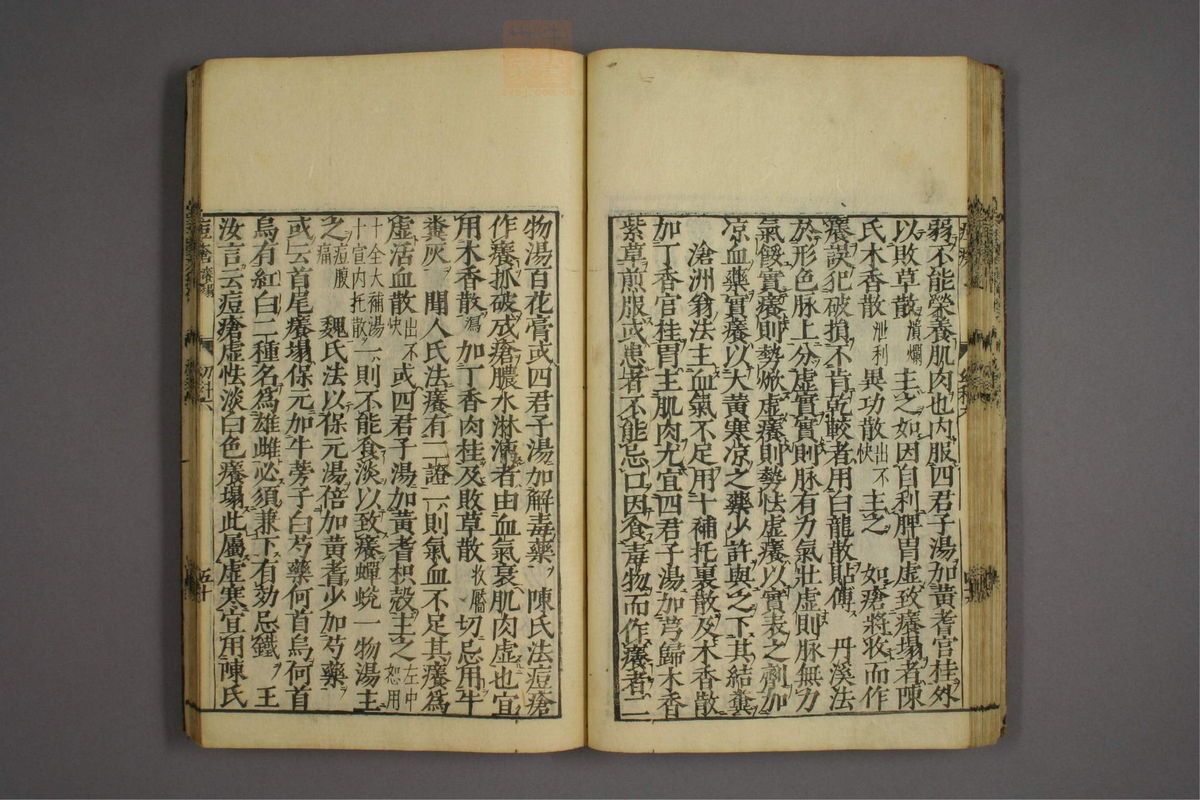 弱不能榮養肌肉也内服四君子湯加黃耆官桂外
以敗草散潰爛主之如因自利脾胃虛致癢塌者陳
氏木香散泄利異功散出不快主之　如瘡將收而作
癢誤犯破損不肯乾較者用白龍散貼傅　丹溪法
於形色脉上分虛實實則脉有力氣壯虛則脉無力
氣餒實癢則勢焮虛癢則勢怯虛癢以實表之劑加
凉血藥實癢以大黃寒凉之藥少許與之下其結糞
滄洲翁法主血氣不足用十補托裏散及木香散
加丁香官桂胃主肌肉尤宜四君子湯加芎歸木香
紫草煎服或患者不能忌口因食毒物而作癢者二
物湯百花膏或四君子湯加解毒藥　陳氏法痘瘡
作癢抓破成瘡膿水淋漓者由血氣衰肌肉虛也宜
用木香散瀉加丁香肉桂及敗草散收靨切忌用牛
糞灰　聞人氏法癢有二證一則氣血不足其癢爲
虛活血散出不快或四君子湯加黃耆枳殻主之左中恕用
十全大補湯十宣内托散一則不能食淡以致癢蟬蛻一物湯主
之痘腹痛　魏氏法以保元湯倍加黃耆少加芍藥
或云首尾癢塌保元加牛蒡子白芍藥何首烏何首
烏有紅白二種名爲雄雌必須兼下有効忌鐵　王
汝言云痘瘡虛怯淡白色癢塌此屬虛寒宜用陳氏
五十